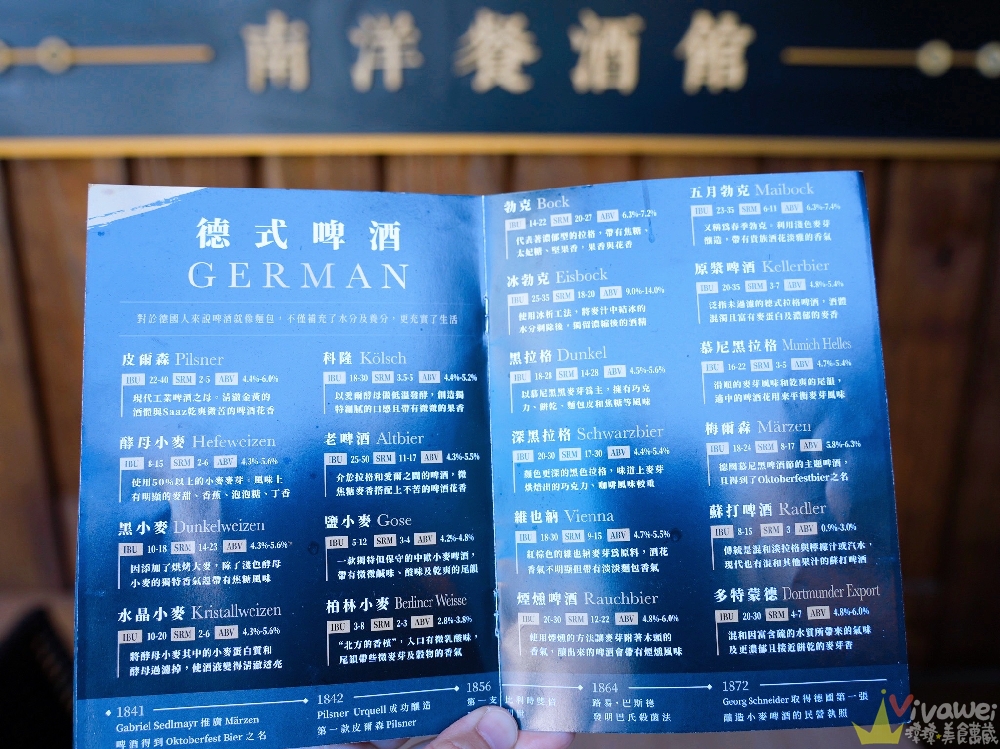 南洋餐酒館
德式啤酒
GERMAN
對於德國人來說啤酒就像麵包，不僅補充了水分及養分，更充實了生活
皮爾森 Pilsner
IBU 22-40 SRM 2-5 ABV 4.4%-6.0%
現代工業啤酒之母。清澈金黃的
酒體與Saaz乾爽微苦的啤酒花香
酵母小麥 Hefeweizen
IBU 8-15 SRM 2-6 ABV 4.3%-5.6%
使用50%以上的小麥麥芽。風味上
有明顯的麥甜、香蕉、泡泡糖、丁香
黑小麥 Dunkelweizen
IBU 10-18 SRM 14-23 ABV 4.3%-5.6%
因添加了烘烤大麥，除了淺色酵母
小麥的獨特香氣還帶有焦糖風味
水晶小麥 Kristallweizen
IBU 10-20 SRM 2-6 ABV 4.3%-5.6%
將酵母小麥其中的小麥蛋白質和
酵母過濾掉，使酒液變得清澈透亮
科隆 Kölsch
IBU 18-30 SRM 3.5-5 ABV 4.4%-5.2%
以愛爾酵母做低溫發酵，創造獨
特細膩的口感且帶有微微的果香
老啤酒 Altbier
IBU 25-50 SRM 11-17 ABV 4.3%-5.5%
介於拉格和愛爾之間的啤酒，微
焦糖麥香搭配上不苦的啤酒花香
鹽小麥 Gose
IBU 5-12 SRM 3-4 ABV 4.2%-4.8%
一款獨特但保守的中歐小麥啤酒，
帶有微微鹹味、酸味及乾爽的尾韻
柏林小麥 Berliner Weisse
IBU 3-8 SRM 2-3 ABV 2.8%-3.8%
“北方的香檳”，入口有微乳酸味，
尾韻帶些微麥芽及穀物的香氣
勃克 Bock
IBU 14-22 SRM 20-27 ABV 6.3%-7.2%
代表著濃郁型的拉格，帶有焦糖、
太妃糖、堅果香，果香與花香
冰勃克 Eisbock
IBU 25-35 SRM 18-20 ABV 9.0%-14.0%
使用冰析工法，將麥汁中結冰的
水分剔除後，獨留濃縮後的酒精
黑拉格 Dunkel
IBU 18-28 SRM 14-28 ABV 4.5%-5.6%
以慕尼黑黑麥芽為主，擁有巧克
力、餅乾、麵包皮和焦糖等風味
深黑拉格 Schwarzbier
IBU 20-30 SRM 17-30 ABV 4.4%-5.4%
顏色更深的黑色拉格，味道上麥芽
烘焙出的巧克力、咖啡風味較重
維也納 Vienna
IBU 18-30 SRM 9-15 ABV 4.7%-5.5%
紅棕色的維也納麥芽為原料，酒花
香氣不明顯但帶有淡淡麵包香氣
煙燻啤酒 Rauchbier
IBU 20-30 SRM 12-22 ABV 4.8%-6.0%
使用煙燻的方法讓麥芽附著木頭的
香氣，釀出來的啤酒會帶有煙燻風味
五月勃克 Maibock
IBU 23-35 SRM 6-11 ABV 6.3%-7.4%
又稱為春季勃克。利用淺色麥芽
釀造，帶有貴族酒花淡雅的香氣
原漿啤酒 Kellerbier
IBU 20-35 SRM 3-7 ABV 4.8%-5.4%
泛指未過濾的德式拉格啤酒，酒體
混濁且富有麥蛋白及濃郁的麥香
慕尼黑拉格 Munich Helles
IBU 16-22 SRM 3-5 ABV 4.7%-5.4%
滑順的麥芽風味和乾爽的尾韻，
適中的啤酒花用來平衡麥芽風味
梅爾森 Märzen
IBU 18-24 SRM 8-17 ABV 5.8%-6.3%
德國慕尼黑啤酒節的主題啤酒，
且得到了Oktoberfestbier之名
蘇打啤酒 Radler
IBU 8-15 SRM 3 ABV 0.9%-3.0%
傳統是混和淡拉格與檸檬汁或汽水，
現代也有混和其他果汁的蘇打啤酒
多特蒙德 Dortmunder Export
IBU 20-30 SRM 4-7 ABV 4.8%-6.0%
混和因富含硫的水質所帶來的氣味
及更濃郁且接近餅乾的麥芽香
1841
Gabriel Sedlmayr 推廣 Märzen
啤酒得到 Oktoberfest Bier 之名
1842
Pilsner Urquell 成功釀造
第一款皮爾森 Pilsner
1856
第一支
比利時雙倍
1864
路易·巴斯德
發明巴氏殺菌法
1872
Georg Schneider 取得德國第一張
釀造小麥啤酒的民營執照
Vivawei